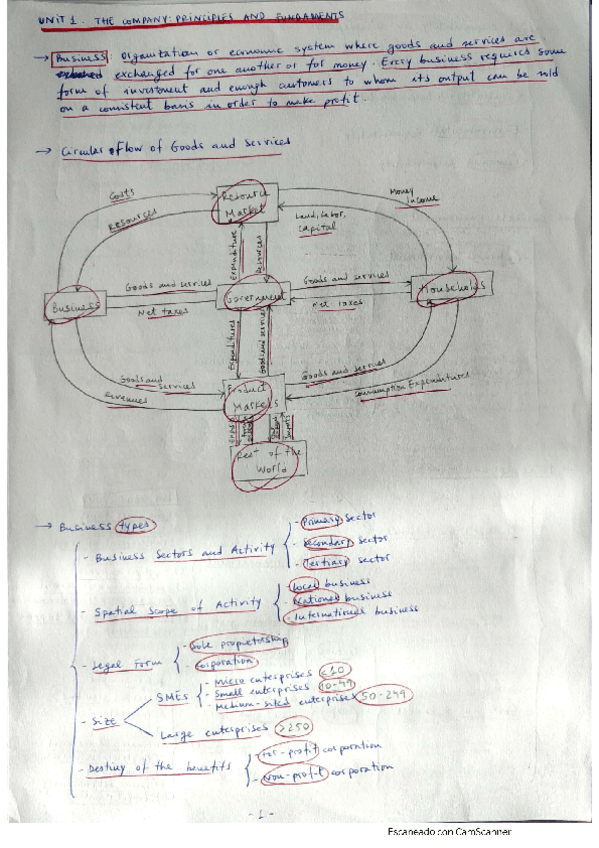 UNIT 1. THE COMPANY: PRINCIPLES AND FUNDAMENTS
→ Business: Organization or economic system where goods and services are
exchanged for one another or for money. Every business requires some
form of investment and enough customers to whom its output can be sold
on a consistent basis in order to make profit.
→ Circular Flow of Goods and Services
Costs
Resources
Resource
Market
Money
Income
Land, Labor,
Capital
Expenditure
Resources
Business
Goods and services
Net taxes
Government
Goods and services
Net taxes
Households
Expenditures
Goods and services
Goods and
Services
Revenues
Product
Markets
Goods and services
Consumption Expenditures
Rest of the
World
→ Business types
- Business Sectors and Activity
- Primary Sector
- Secondary Sector
- Tertiary sector
- Spatial Scope of Activity
- Local business
- National business
- International business
- Legal Form
- Sole proprietorship
- Corporation
- Size
SMEs
- Micro enterprises <10
- Small enterprises 10-49
- Medium-sized enterprises 50-249
Large enterprises >250
- Destiny of the benefits
- For-profit corporation
- Non-profit corporation
- 1 -
Escaneado con CamScanner